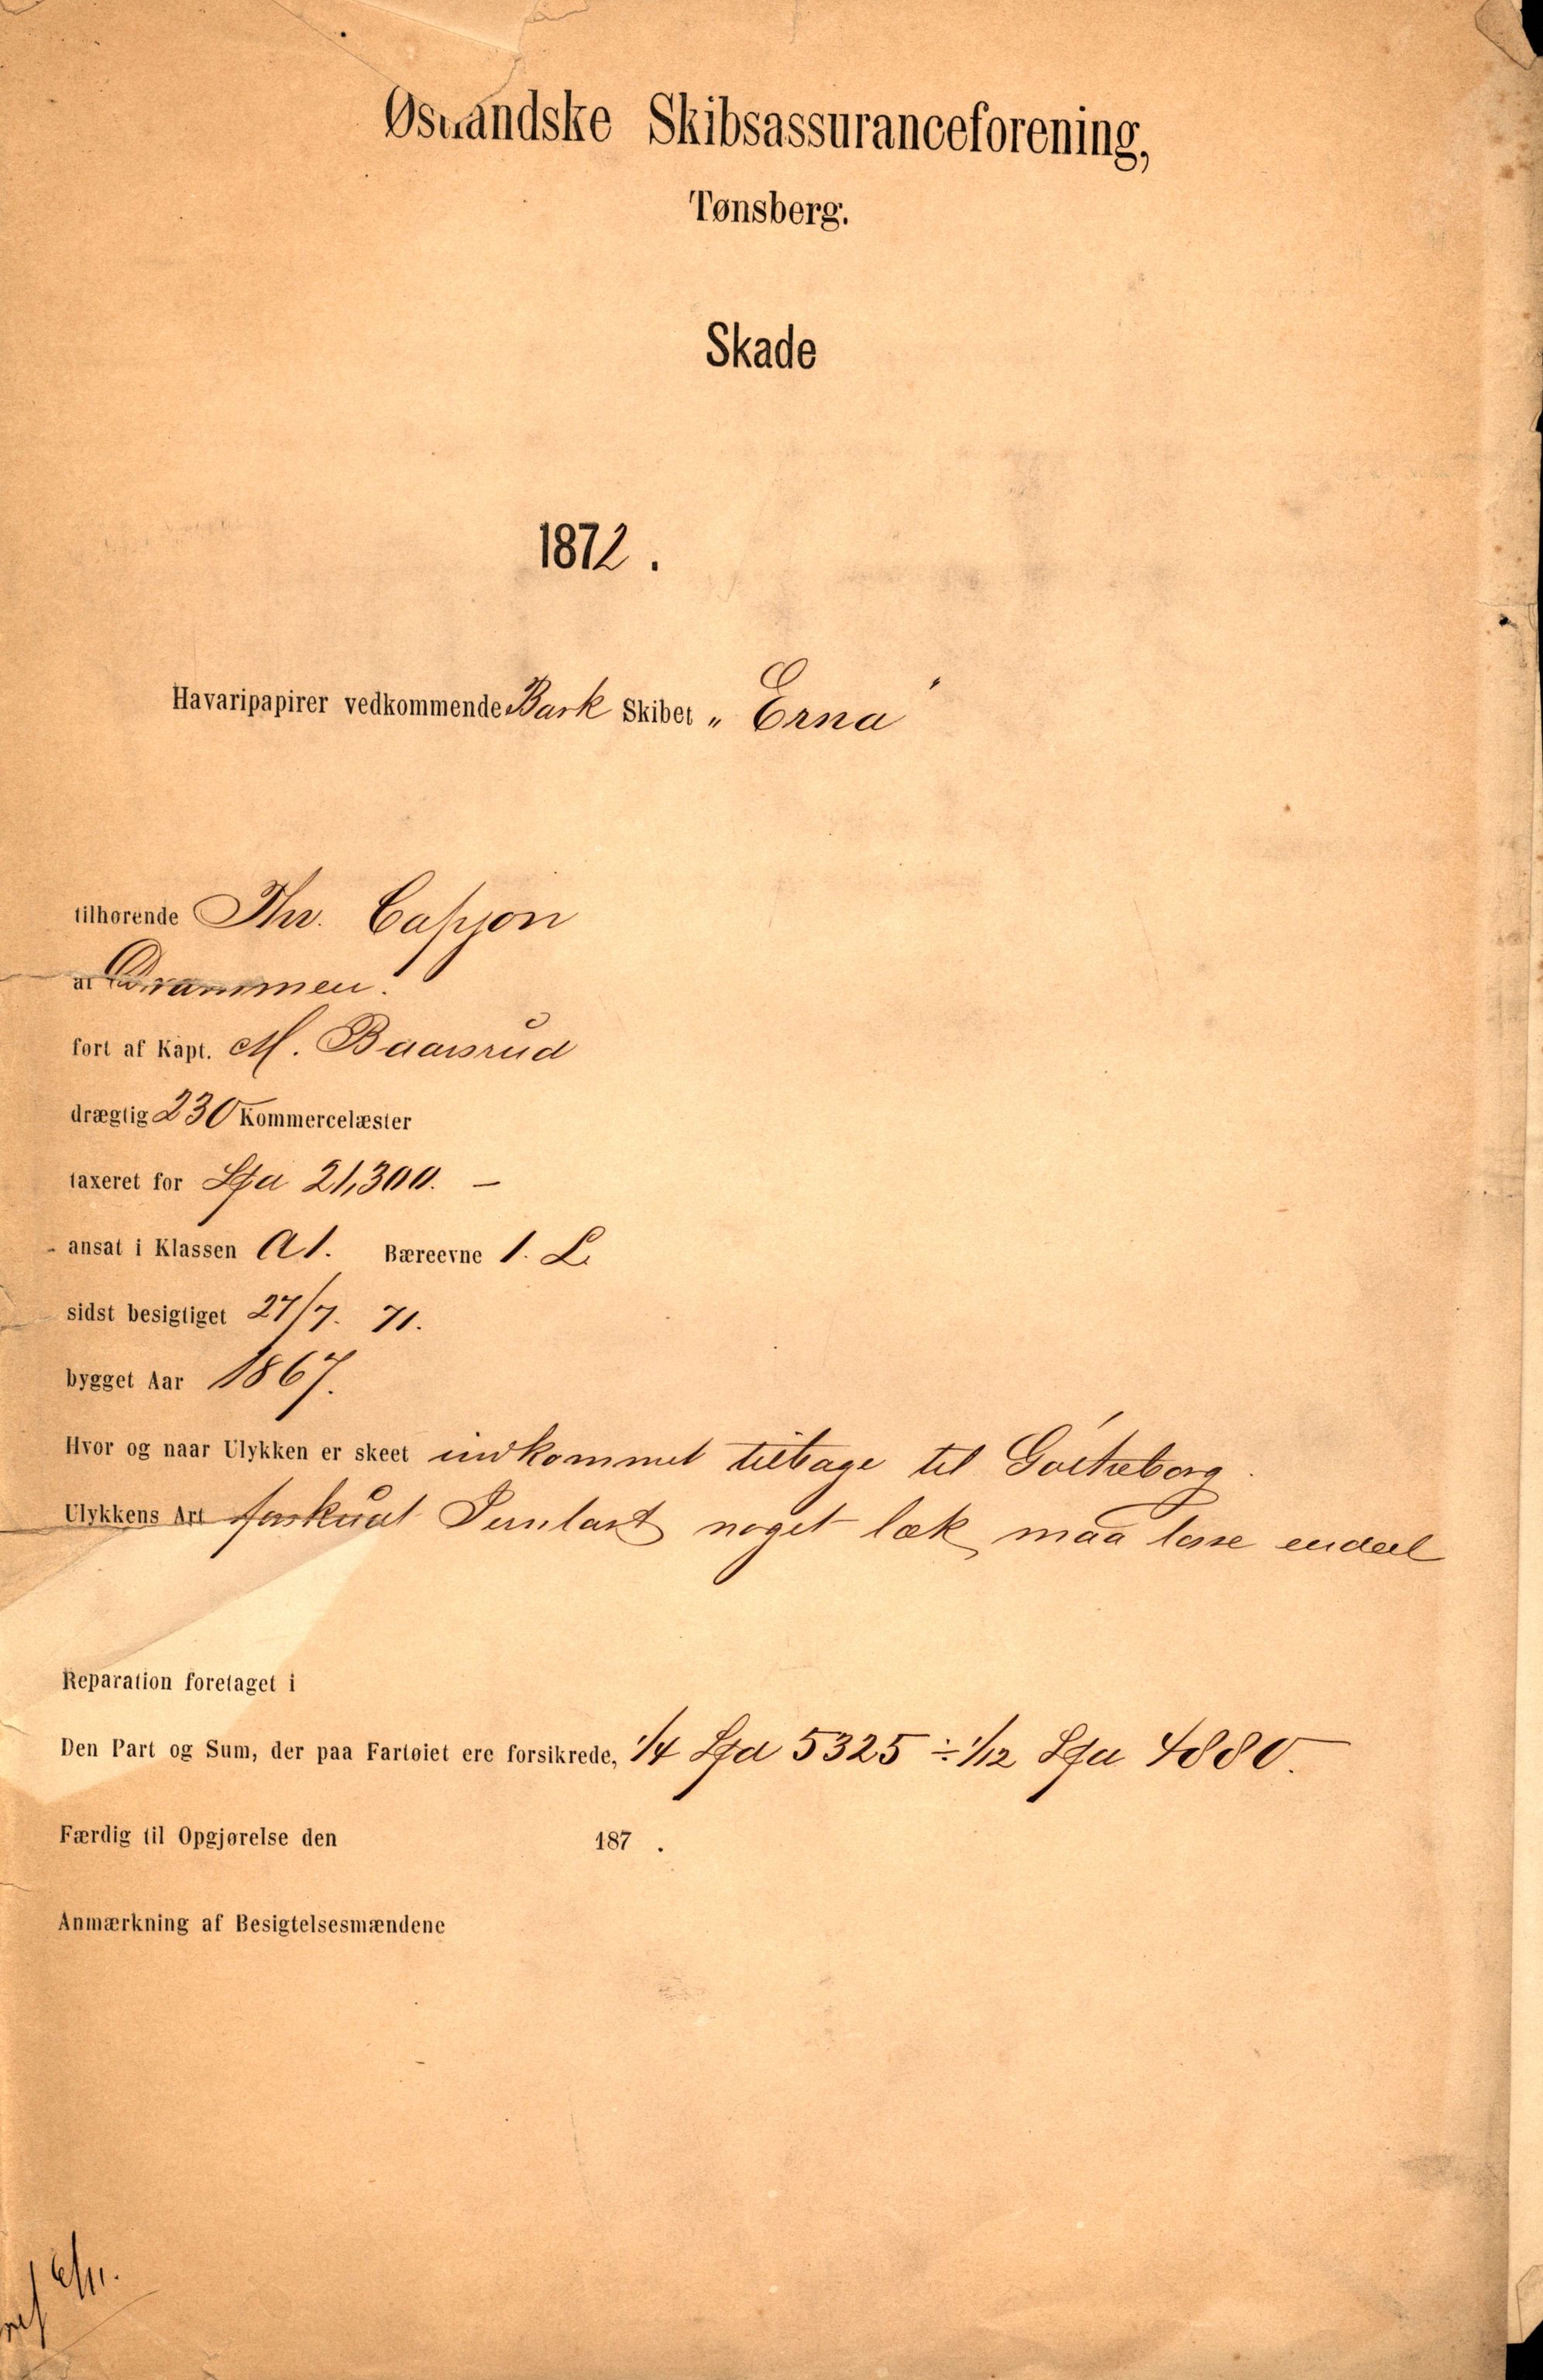 Østlandske Skibsassuranceforening,
Tønsberg.
Skade
1872.
Havaripapirer vedkommende Bark Skibet „Erna"
tilhørende Thv. Cappon
af Drammen.
ført af Kapt. M. Baarsrud
drægtig 230 Kommercelæster
taxeret for Spd 21,300. –
ansat i Klassen A1. Bæreevne 1. L
sidst besigtiget 27/7. 71.
bygget Aar 1867.
Hvor og naar Ulykken er skeet indkommet tilbage til Gøtheborg.
Ulykkens Art forskudt Jernlast noget læk maa losse endeel
Reparation foretaget i
Den Part og Sum, der paa Fartøiet ere forsikrede, 1/4 Spd 5325 ÷ 1/12 Spd 4880.
Færdig til Opgjørelse den 187 .
Anmærkning af Besigtelsesmændene
6/11.